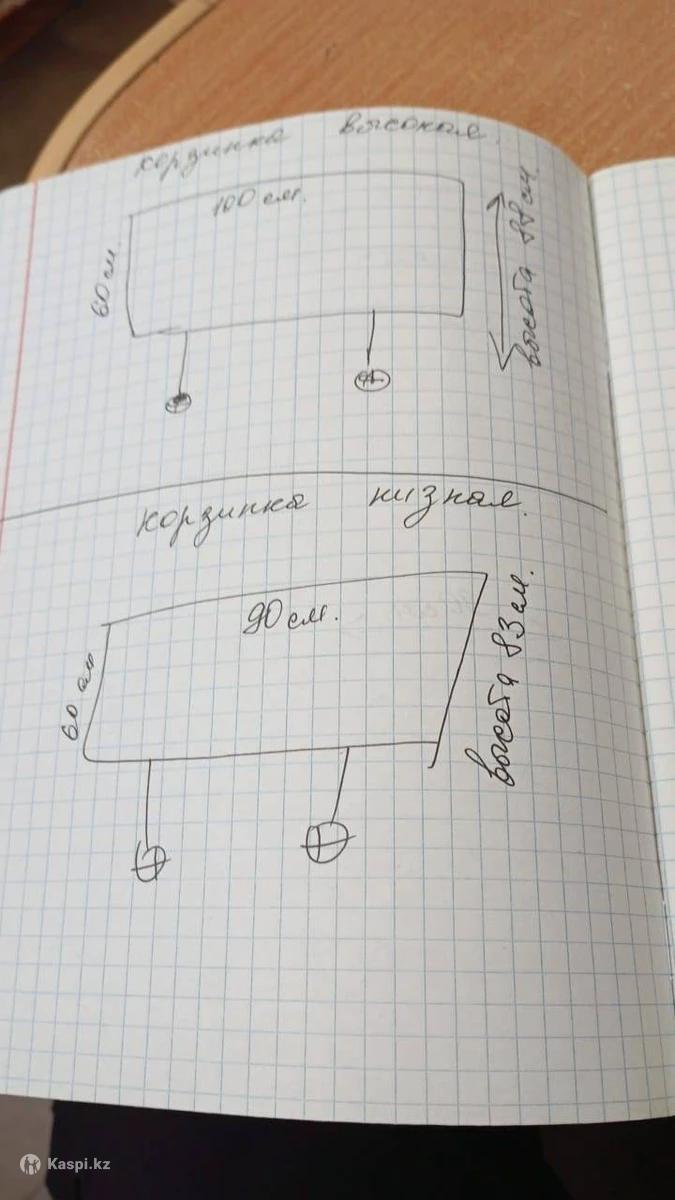 корзинка высокая.
100 см.
60 см.
высота 88 см
корзинка низная.
90 см.
60 см
высота 83 см.
Kaspi.kz